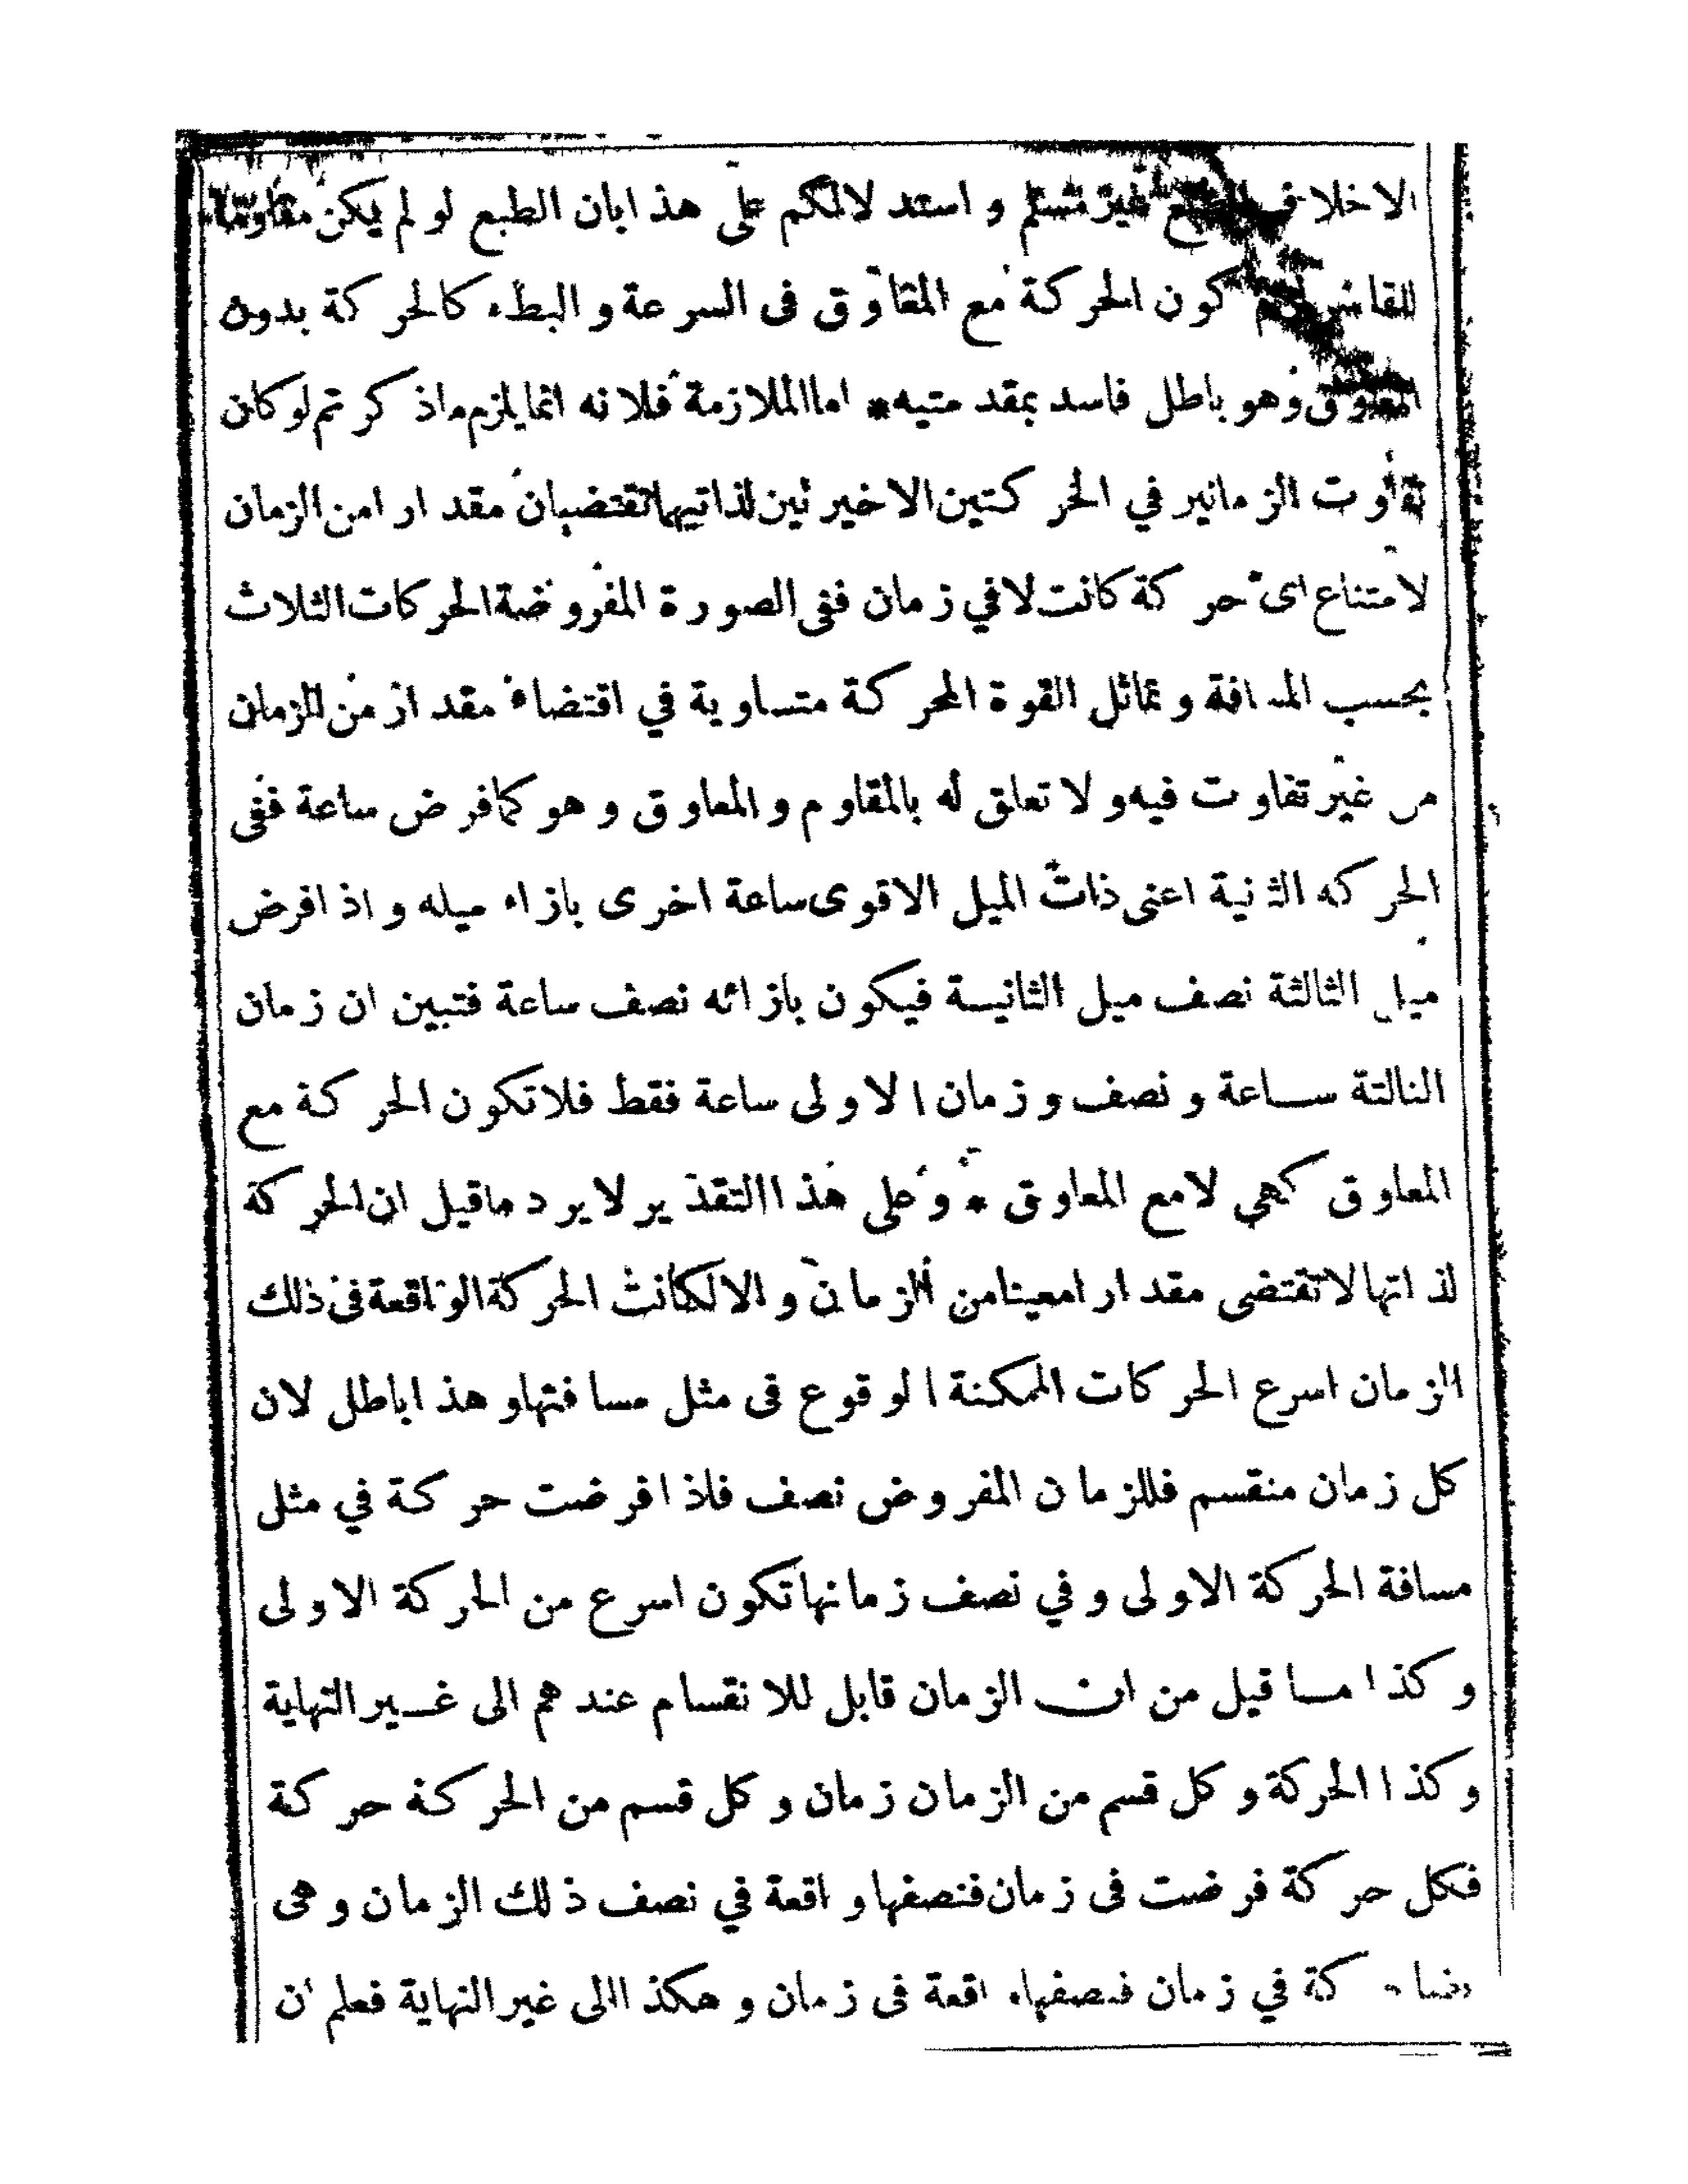 الاخلاف غير مسلم و استدلالكم على هذا بان الطبع لو لم يكن مقاوما
للقاسر لزم كون الحركة مع المعاوق فى السرعة و البطء كالحركة بدون
المعاوق وهو باطل فاسد بمقدمتيه * اما الملازمة فلانه انما يلزم ماذكرتم لوكان
تفاوت الزمانين في الحركتين الاخيرتين لذاتيهما تقتضيان مقدارا من الزمان
لامتناع اى حركة كانت لا في زمان ففى الصورة المفروضة الحركات الثلاث
بحسب المسافة و تماثل القوة المحركة متساوية في اقتضاء مقدار من الزمان
من غير تفاوت فيه و لا تعلق له بالمقاوم و المعاوق و هو كمافرض ساعة ففى
الحركه الثانية اعنى ذات الميل الاقوى ساعة اخرى بازاء ميله و اذا فرض
ميل الثالثة نصف ميل الثانية فيكون بازائه نصف ساعة فتبين ان زمان
الثالثة ساعة و نصف و زمان الاولى ساعة فقط فلاتكون الحركة مع
المعاوق كهي لا مع المعاوق * و على هذا التقدير لا يرد ماقيل ان الحركة
لذاتها لا تقتضى مقدارا معينا من الزمان و الا لكانت الحركة الواقعة فى ذلك
الزمان اسرع الحركات الممكنة الوقوع فى مثل مسافتها و هذا باطل لان
كل زمان منقسم فللزمان المفروض نصف فاذا فرضت حركة في مثل
مسافة الحركة الاولى و في نصف زمانها تكون اسرع من الحركة الاولى
و كذا ما قيل من ان الزمان قابل للانقسام عندهم الى غير النهاية
و كذا الحركة و كل قسم من الزمان زمان و كل قسم من الحركة حركة
فكل حركة فرضت فى زمان فنصفها واقعة في نصف ذلك الزمان و هى
ايضا حركة في زمان فنصفها واقعة فى زمان و هكذا الى غير النهاية فعلم ان